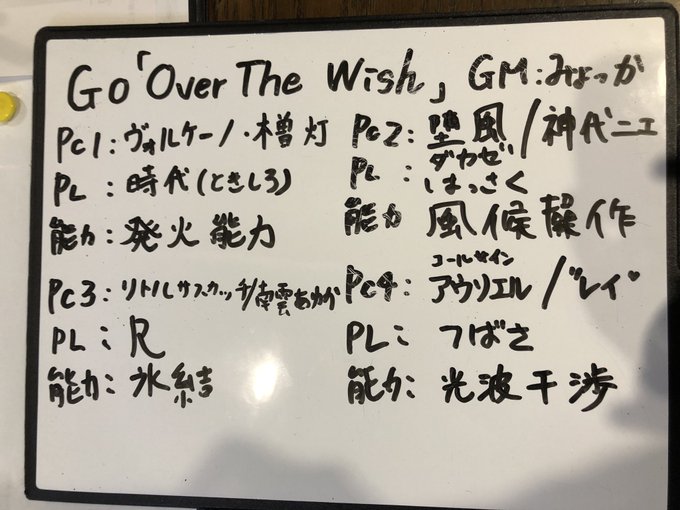 Go「Over The Wish」 GM:みょっが
PC1:ヴォルケーノ・檜灯
PL:時代(ときしろ)
能力:発火能力
PC2:堕風/神代ニエ
ダカゼ
PL:はっさく
能力 風候操作
PC3:リトルサスカッチ/南雲あゆか
PL:R
能力:氷結
コールサイン
PC4:アウリエル/"レイ"
PL:つばさ
能力:光波干渉